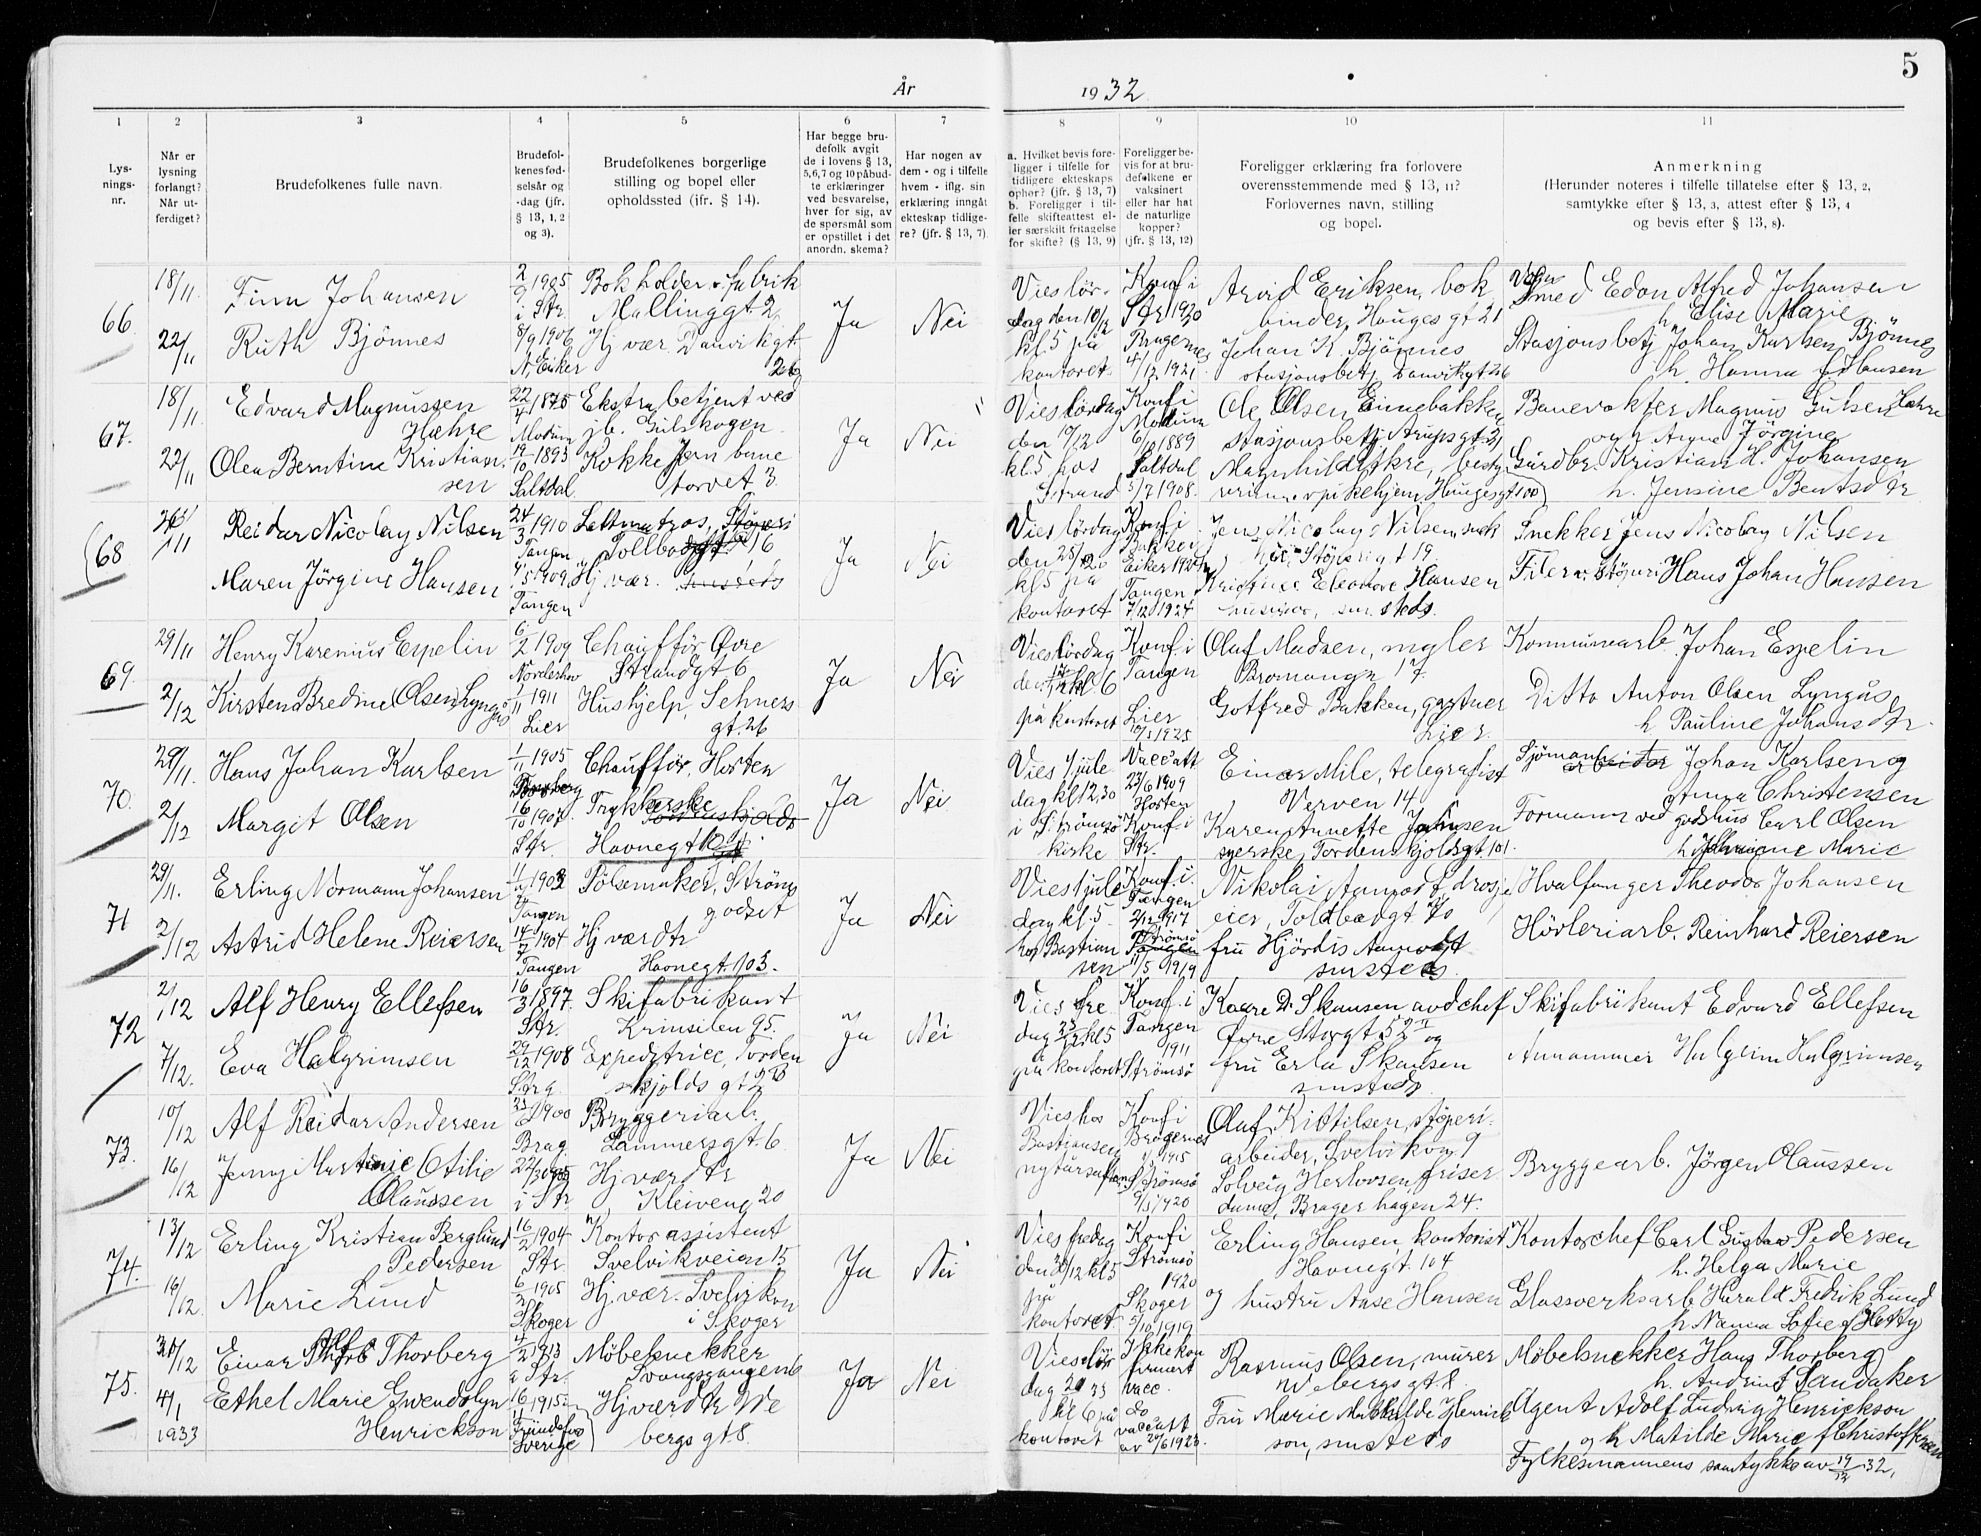 År
1932
5
1 2 3 4 5 6 7 8 9 10 11
Lys-
nings-
nr.
Når er
lysning
forlangt?
Når ut-
ferdiget?
Brudefolkenes fulle navn.
Brudefol-
kenes fød-
selsår og
-dag (jfr.
§ 13, 1, 2
og 3).
Brudefolkenes borgerlige
stilling og bopel eller
opholdssted (jfr. § 14).
Har begge bru-
defolk avgit
de i lovens § 13,
5,6,7 og 10 påbud-
te erklæringer
ved besvarelse,
hver for sig, av
de spørsmål som
er opstillet i det
anordn. skema?
Har nogen av
dem - og i tilfelle
hvem - iflg. sin
erklæring inngått
ekteskap tidlige-
re? (jfr. § 13, 7).
a. Hvilket bevis fore-
ligger i tilfelle for
tidligere ekteskaps
ophør? (jfr. § 13, 7)
b. Foreligger i til-
felle skifteattest el-
ler særskilt fritagelse
for skifte? (§ 13, 9)
Foreligger be-
vis for at bru-
defolkene er
vaksinert
eller har hat
de naturlige
kopper?
(jfr. § 13, 12)
Foreligger erklæring fra forlovere
overensstemmende med § 13, 11?
Forlovernes navn, stilling
og bopel.
Anmerkning
(Herunder noteres i tilfelle tillatelse efter § 13, 2,
samtykke efter § 13, 3, attest efter § 13, 4
og bevis efter § 13, 8).
66.
18/11
22/11
Finn Johansen
Ruth Bjönnes
1905
i Str.
8/9 1906
N. Eiker
Bokholder v. fabrik
Mallinggt. 2
Hj. vær. Danvikgt.
26
Ja
Nei
Vies lör-
dag den 10/12
kl. 5 på
kontoret
Konf i
Str 1920
Bragernes
4/12 1921
Arvid Eriksen, bok
binder, Hauges gt 21
Johan K. Bjönnes
stasjonsbetj. Danvikgt 26
Smed Edon Alfred Johansen
h. Elise Marie
Stasjonsbetj Johan Karlsen Bjönnes
h. Hanna f Hansen
67.
18/11
22/11
Edvard Magnussen
Hæhre
Olea Berntine Kristian-
sen
22/4 1875
Modum
19/10 1893
Saltdal
Ekstrabetjent ved
jb. Gulskogen
Kokke Jernbane
torvet 3
Ja
Nei
Vies lördag
den 10/12
kl. 5 hos
Strand
Konf i
Modum
6/10 1889
Saltdal
5/7 1908.
Ole Olsen Einebakken
stasjonsbetj Arupsgt. 21
Magnhild, besty
Hauges gt 100
Banevokter Magnus Gulsen Hæhre
Jörgine
Gårdbr. Kristian H. Johansen
h. Jensine Bentsdtr
68
26/11
Reidar Nicolay Nilsen
Maren Jörgine Hansen
24/3 1910
Tangen
5 1909
Tangen
Lettmatros, Støperi
Tollbodgt 16
Hj vær. smsteds
Ja
Nei
Vies lördag
kl 5 på
kontoret
Konf i
Eiker
Tangen
7/12 1924
Jens Nicolay Nilsen, snek
ker, Støperigt 19
Kristine Eleonore Hansen
smsteds.
Snekker Jens Nicolay Nilsen
Filer v. støperi Hans Johan Hansen
69.
29/11
2/12
Henry Karenius Espelin
Kirsten Bredine Olsen Lyngås
6/2 1909
Norderhov
1/11 1911
Lier
Chauffør Øvre
Strandgt 6
Hushjelp, Sehners
gt. 26
Ja
Nei
Vies lördag
den 17/12 kl 6
på kontoret
Konf. i
Tangen
Lier
1925
Olaf Madsen, mgler
Bromangn 17
Gotfred Bakken, gartner
Lier.
Kommunearb. Johan Espelin
Ditto Anton Olsen Lyngås
h Pauline Johansdtr
70.
29/11.
2/12
Hans Johan Karlsen
Margit Olsen
1/11 1905
Borberg
16/10 1907
Str.
Chauffør, Horten
Trykkerske
Tordenskjolds
Havnegt 101
Ja
Nei
Vies 1 jule
dag kl 12,30
i Strømsö
kirke
Vacc att
23/6 1909
Horten
Konf i
Str.
Einar Mile, telegrafist
Verven 14
Karen Annette Johnsen
syerske, Tordenskjoldsgt. 101.
Sjömann arbeider Johan Karlsen og
Anna Christensen
Formann ved godshus Carl Olsen
h. Marie
71
29/11.
2/12
Erling Normann Johansen
Astrid Helene Reiersen
1903
Tangen
14/7 1904
Tangen
Pølsemaker, Ström
godset
Hj værdtr
Havnegt. 103.
Ja
Nei
Vies 1 jule
dag kl. 5
hos Bastian
sen
Konf. i.
Tangen
1917
Strömsö
Tangen
11/5 1919
Nikolai Aamodt, drosje
eier, Toldbodgt 70
fru Hjördis Aamodt
smsteds
Hvalfanger Theodor Johansen
Hövleriarb. Reinhard Reiersen
72
2/12
7/12.
Alf Henry Ellefsen
Eva Halgrimsen
16/3 1897.
Str.
29/12 1908
Str g.
Skifabrikant
Krinsilen 95.
Expeditrice, Torden
skjolds gt 2B
Ja
Nei
Vies fre
dag 23/12 kl 5
på kontoret
Konf. i
Tangen
1911
Strömsö
Kaare D. Skansen avd chef
Øvre Storgt 52 I og
fru Erla Skansen
smsteds
Skifabrikant Edvard Ellefsen
Annammer Halgrim Halgrimsen
73.
10/12
16/12
Alf Reidar Andersen
Jenny Martinie Otilie
Olaussen
1900
Brag
22/3 1905
i Str
Bryggeriarb.
Lammersgt. 6
Hj værdtr
Kleiveng 20
Ja
Nei
Vies hos
Bastiansen
nytårsaften
Konf i
Bragernes
1915
Strømsø
1920
Olaf Kittilsen, støperi
arbeider, Svelvikvn 9
Solveig Herlovsen, friser
dame, Bragerhagen 24.
Bryggearb. Jörgen Olaussen
74.
13/12
16/12
Erling Kristian Berglund
Pedersen
Marie Lund
16/2 1904
Str.
6/3 1905
Skoger
Kontorassistent
Svelvikveien 15
Hj. vær. Svelvikvn
i Skoger
Ja
Nei
Vies fredag
den 30/12 kl 5
på
kontoret
Konf i
Strömsö
1920
Skoger
5/10 1919
Erling Hansen, kontorist
Havnegt. 104
og hustru Aase Hansen
Kontorchef Carl Gustav Pedersen
h. Helga Marie
Glassverksarb Harald Fredrik Lund
h. Nanna Sofie f Hotty
75.
31/12
4/1
1933
Einar Thorberg
Ethel Marie Gwendolyn
Henrickson
1913
Str.
16/11 1915
Sverige
Møbelsnekker
Svangsgangen 6
Hj værdtr We
bergs gt. 8.
Ja
Nei
Vies lör
dag
kl 6 på
kontoret
Ikke kon
firmert
vacc.
do
vacc att
av 20/6 1923.
Rasmus Olsen, murer
Webergs gt. 8
Fru Marie Mathilde Henrick
son, smsteds
Møbelsnekker Hans Thorberg
h. Andrine f Sandaker
Agent Adolf Ludvig Henrickson
og h Matilde Marie f Christoffersen
Fylkesmannens samtykke av 19/12 32.